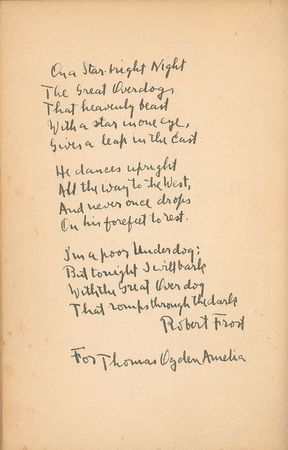 On a Star-bright Night
The Great Overdog,
That heavenly beast
With a star in one eye,
Gives a leap in the East.
He dances upright
All the way to the West,
And never once drops
On his forefeet to rest.
I'm a poor Underdog;
But tonight I will bark
With the Great Overdog
That romps through the dark
Robert Frost
For Thomas Ogden Amelia